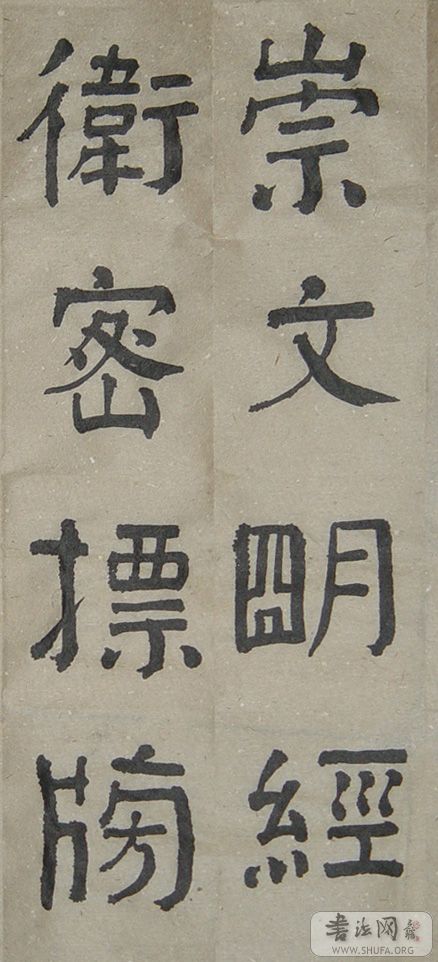 崇文明經
衛密摽牓
书法网
WWW.SHUFA.ORG